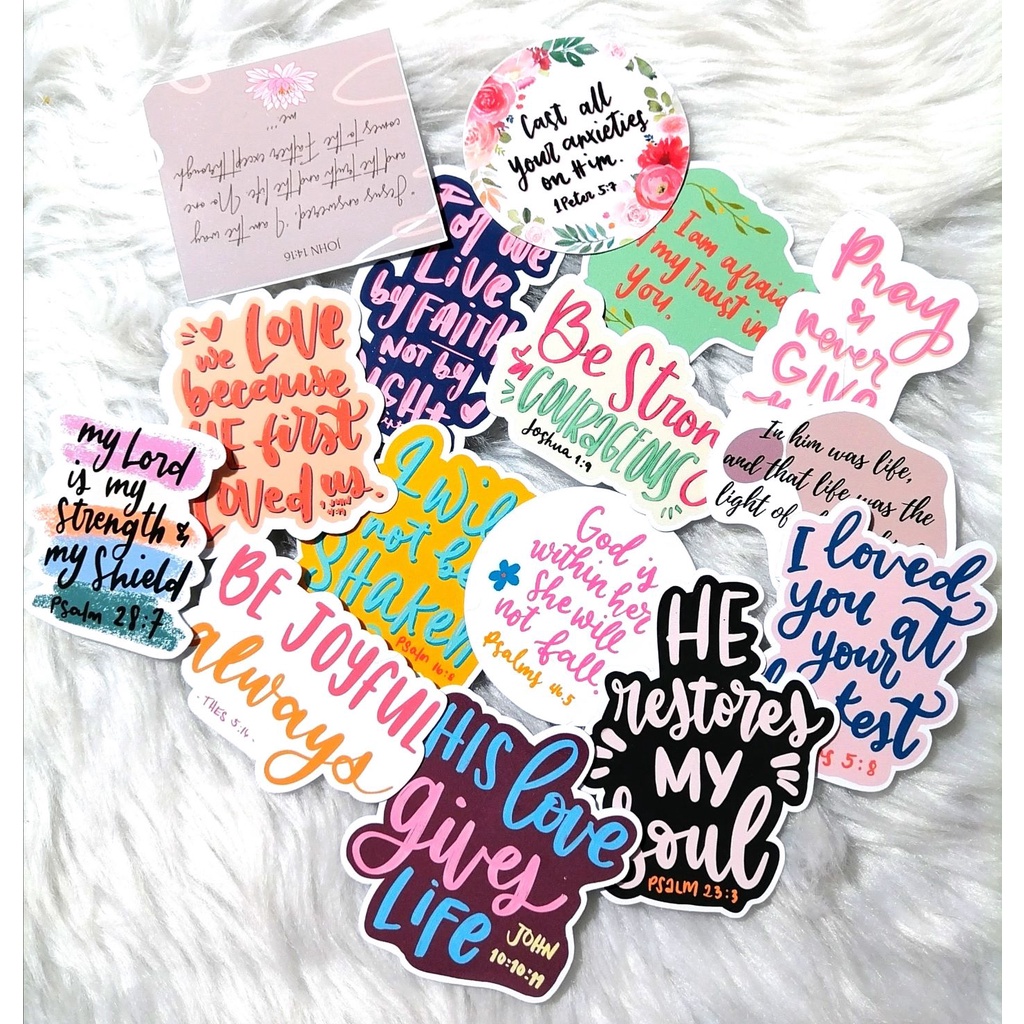 JOHN 14:16
"Jesus answered, 'I am the way
and the truth and the life. No one
comes to the Father except through
me...
Cast all
your anxieties
on Him.
1 Peter 5:7
For we
LiVE
by FAITH
NOT BY
I am afraid
my Trust in
you.
Pray
&
never
GIVE
we LOVE
because
HE first
Loved us.
Be Strong
COURAGEOUS
Joshua 1:9
In him was life,
and that life was the
light of
my Lord
is my
Strength &
my Shield
Psalm 28:7
I will
not be
SHAKEN
Psalm 16:8
God is
within her
She will
not fall.
Psalms 46:5
I loved
you at
your
5:8
BE JOYFUL
always
THES 5:16
HE
restores
MY
Soul
PSALM 23:3
HIS love
gives
LiFe
JOHN
10:10:11